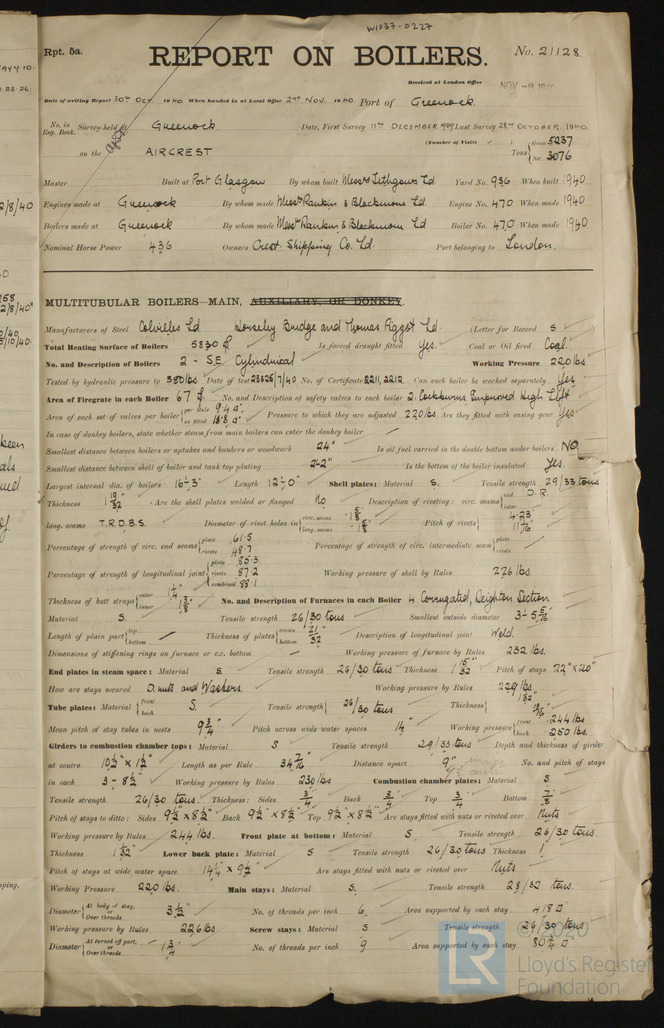 W1037-0227
Rpt. 5a.
REPORT ON BOILERS.
No. 21128
Received at London Office
Date of writing Report 30th Oct. 1940. When handed in at Local Office 2nd Nov. 1940. Port of Greenock
No. in Reg. Book. Survey held at Greenock Date, First Survey 11th December 1939 Last Survey 28th October, 1940
(Number of Visits )
on the AIRCREST Tons { Gross 5237 Net 3076
Master Built at Port Glasgow By whom built Messrs Lithgows Ld Yard No. 936 When built 1940
Engines made at Greenock By whom made Messrs Rankin & Blackmore Ld Engine No. 470 When made 1940
Boilers made at Greenock By whom made Messrs Rankin & Blackmore Ld Boiler No. 470 When made 1940
Nominal Horse Power 436 Owners Crest Shipping Co. Ld. Port belonging to London.
MULTITUBULAR BOILERS—MAIN, AUXILIARY, OR DONKEY.
Manufacturers of Steel Colvilles Ld Horseley Bridge and Thomas Piggot Ld. (Letter for Record S )
Total Heating Surface of Boilers 5830 Is forced draught fitted Yes. Coal or Oil fired Coal.
No. and Description of Boilers 2 - S.E. Cylindrical Working Pressure 220 lbs
Tested by hydraulic pressure to 380 lbs Date of test /7/40 No. of Certificate 2211, 2212. Can each boiler be worked separately Yes
Area of Firegrate in each Boiler 67 No. and Description of safety valves to each boiler 2. Cockburns Improved High Lift
Area of each set of valves per boiler { per Rule 9.4 as fitted 18.8 Pressure to which they are adjusted 220 lbs. Are they fitted with easing gear Yes
In case of donkey boilers, state whether steam from main boilers can enter the donkey boiler —
Smallest distance between boilers or uptakes and bunkers or woodwork 24" Is oil fuel carried in the double bottom under boilers NO
Smallest distance between shell of boiler and tank top plating 2'-2" Is the bottom of the boiler insulated Yes.
Largest internal dia. of boilers 16'-3" Length 12'-0" Shell plates: Material S. Tensile strength 29/33 tons
Thickness 1 19/32 Are the shell plates welded or flanged No Description of riveting: circ. seams { end D.R. inter.
long. seams T.R.D.B.S. Diameter of rivet holes in { circ. seams long. seams Pitch of rivets { 4.23 11 7/16
Percentage of strength of circ. end seams { plate 61.5 rivets 48.7 Percentage of strength of circ. intermediate seam { plate rivets
Percentage of strength of longitudinal joint { plate 85.3 rivets 87.2 combined 88.1 Working pressure of shell by Rules 226 lbs.
Thickness of butt straps { outer 1 1/4" inner 1 3/8" No. and Description of Furnaces in each Boiler 4 Corrugated, Leighton Section
Material S. Tensile strength 26/30 tons Smallest outside diameter 3'-5 5/16"
Length of plain part { top bottom — Thickness of plates { crown bottom 21/32 Description of longitudinal joint Weld.
Dimensions of stiffening rings on furnace or c.c. bottom — Working pressure of furnace by Rules 232 lbs.
End plates in steam space: Material S. Tensile strength 26/30 tons Thickness 1 15/32 Pitch of stays 22" x 20"
How are stays secured D. nuts and Washers. Working pressure by Rules 229 lbs
Tube plates: Material { front back S. Tensile strength { 26/30 tons Thickness {
Mean pitch of stay tubes in nests 9 3/4" Pitch across wide water spaces 14" Working pressure { front 244 lbs back 250 lbs.
Girders to combustion chamber tops: Material S Tensile strength 29/33 tons Depth and thickness of girder
at centre 10 1/2" x 1 1/2" Length as per Rule 34 7/16" Distance apart 9" No. and pitch of stays
in each 3 - 8 1/2" Working pressure by Rules 230 lbs Combustion chamber plates: Material S
Tensile strength 26/30 tons. Thickness: Sides 3/4 Back 3/4 Top 3/4 Bottom 7/8
Pitch of stays to ditto: Sides 9 1/2" x 8 1/2" Back 9 1/2" x 8 1/2" Top 9 1/2" x 8 1/2" Are stays fitted with nuts or riveted over Nuts
Working pressure by Rules 244 lbs. Front plate at bottom: Material S Tensile strength 26/30 tons.
Thickness 1 Lower back plate: Material S Tensile strength 26/30 tons Thickness 1
Pitch of stays at wide water space. 14 1/4" x 9 1/2" Are stays fitted with nuts or riveted over Nuts
Working Pressure 220 lbs. Main stays: Material S. Tensile strength 28/32 tons.
Diameter { At body of stay, or Over threads 3 1/2" No. of threads per inch 6 Area supported by each stay 418
Working pressure by Rules 226 lbs Screw stays: Material S Tensile strength 26/30 tons
Diameter { At turned off part, or Over threads — 1 3/4 No. of threads per inch 9 Area supported by each stay 80 3/4
© 2020
LR
Lloyd's Register
Foundation